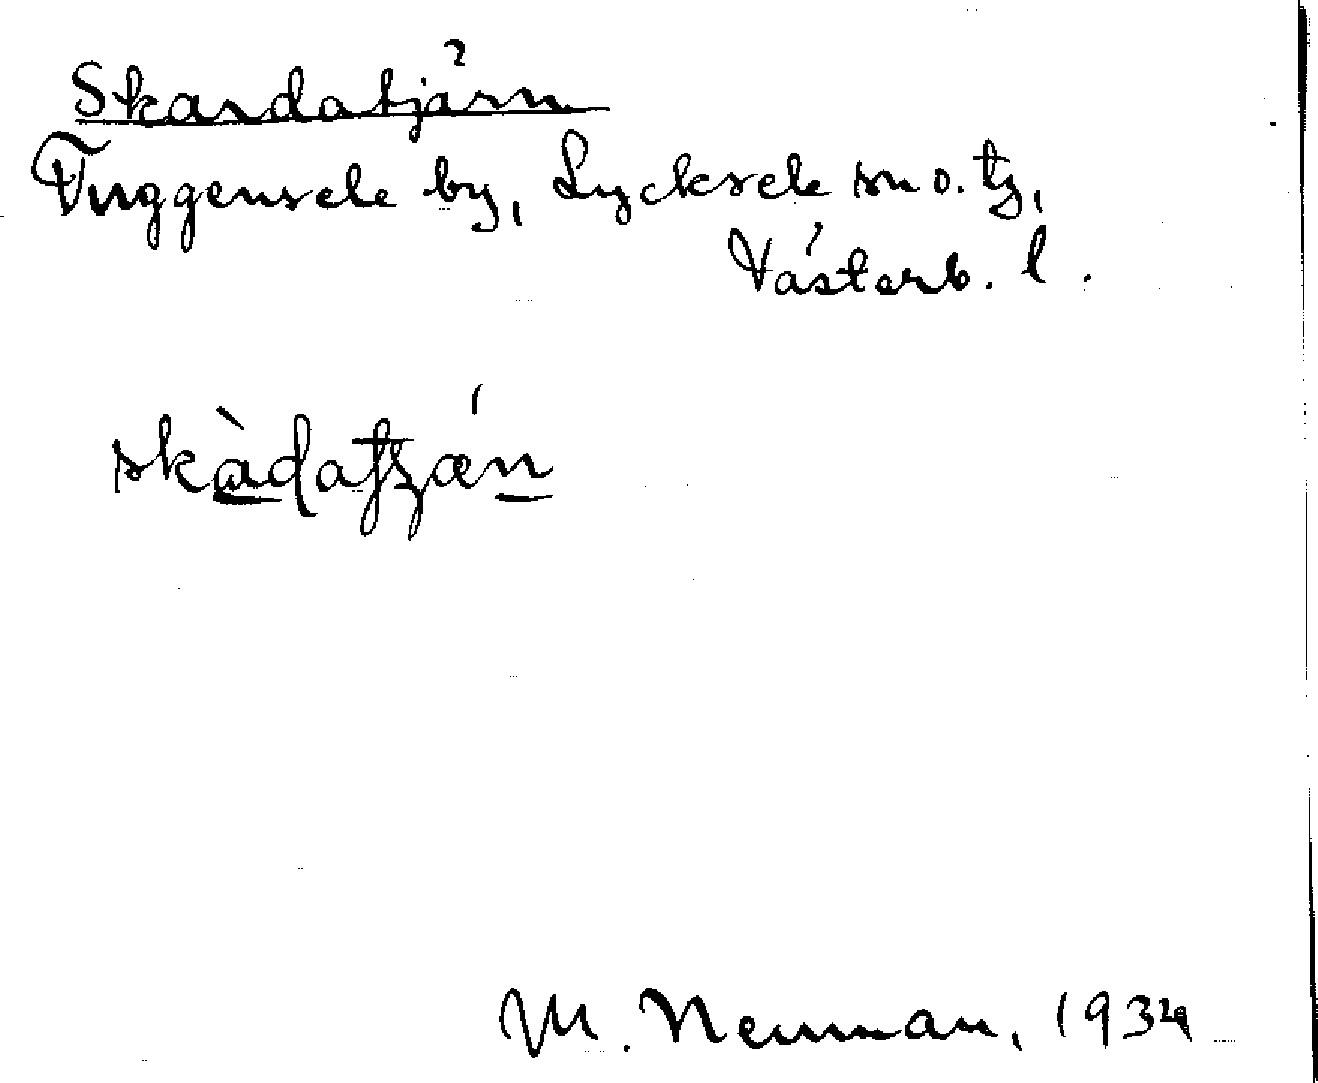 Skardatjärn
Tuggensele by, Lycksele sn o. tg,
Västerb. l.
skàdatjæn
M. Neuman, 1934